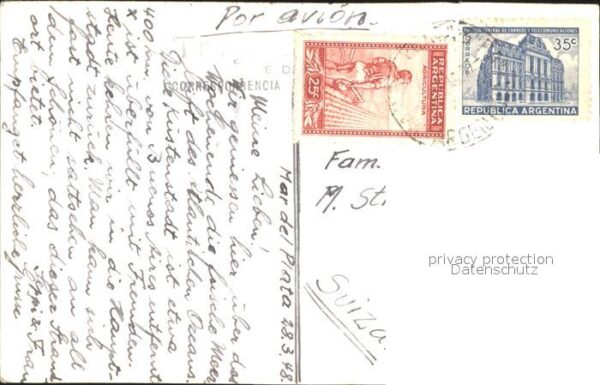 Por avión.
CORRESPONDENCIA
CENTRAL DE CORREOS Y TELECOMUNICACIONES
35c
CORREOS
REPUBLICA ARGENTINA
REPUBLICA
ARGENTINA
AGRICULTURA
25c
Mar del Plata 28.3.48.
Meine Lieben!
Wir geniessen hier über das
Wochenende die frische Meer-
luft des Atlantischen Ozeans.
Die Küstenstadt ist etwa
400 km. von Buenos Aires entfernt
x ist überfüllt mit Fremden.
Heute kehren wir in die Haupt-
stadt zurück. Man kann sich
fast nicht sattsehen an all
dem Schönen, das dieser Strand-
ort bietet.
Empfanget herzliche Grüsse
Fam.
M. St.
Suiza.
privacy protection
Datenschutz